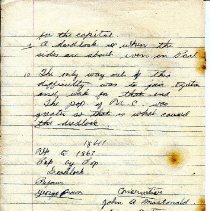 for the capital.
9 A deadlock is when the
sides are about even in Parl
10 The only way out of this
difficulty was to join together
and work for that end.
The pop of U.C. was
greater so that is what caused
the deadlock
1841
Bff to 1867
Rep by Pop
Deadlock
Reform
George Brown
Conservative
John A Macdonald